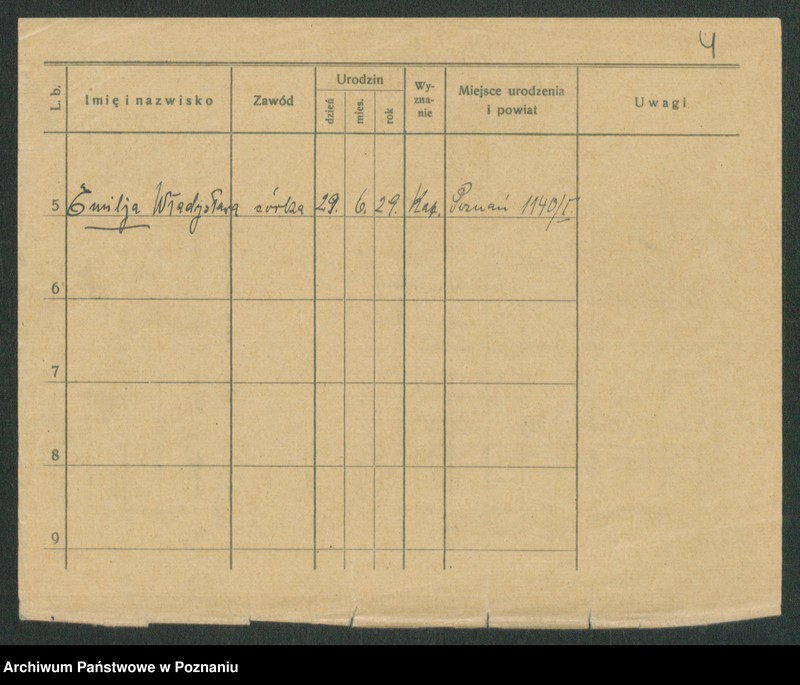 4
L. b. Imię i nazwisko Zawód Urodzin dzień mies. rok Wy-zna-nie Miejsce urodzenia i powiat Uwagi
5 Emilja Władysława córka 29. 6. 29. Kat. Poznań 1140/I.
6
7
8
9
Archiwum Państwowe w Poznaniu